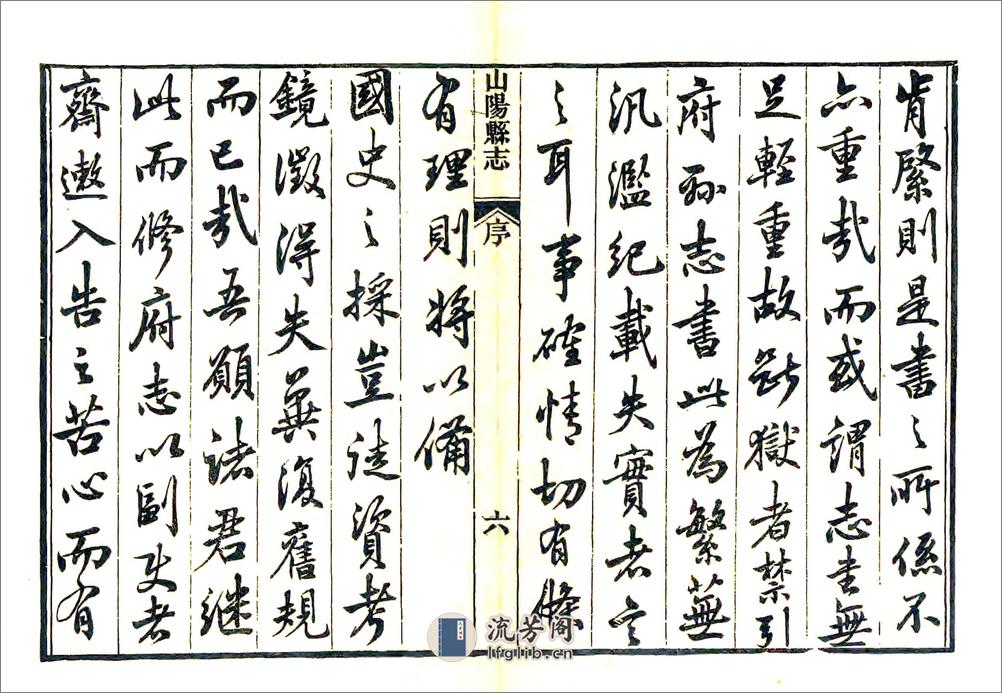 肯綮則是書之所係不
亦重哉而或謂志書無
足輕重故斷獄者禁引
府縣志書此為繁蕪
汎濫紀載失實者言
之耳事確情切有條
山陽縣志
序
六
有理則將以備
國史之採豈徒資考
鏡徵得失冀復舊規
而已哉吾願諸君繼
此而修府志以副史者
齋遨入告之苦心而有
流芳阁
lfglib.cn